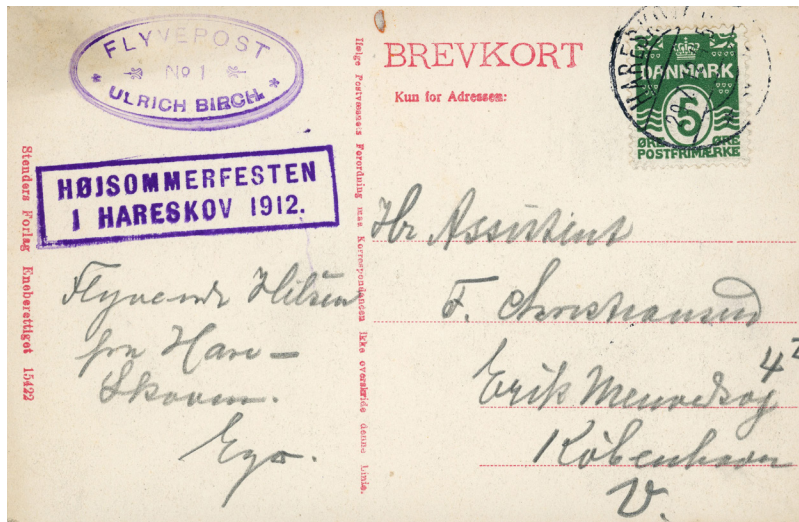 FLYVEPOST
No 1
ULRICH BIRCH.
HØJSOMMERFESTEN
I HARESKOV 1912.
Stenders Forlag Eneberettiget 15422
Flyvende Hilsen
fra Hare-
Skoven.
Ego.
Ifølge Postvæsenets Forordning maa Korrespondancen ikke overskride denne Linie.
BREVKORT
Kun for Adressen:
DANMARK
5
ØRE ØRE
POSTFRIMÆRKE
Hr Assistent
F. Christiansen
Erik Menvedsvej 4
København
V.